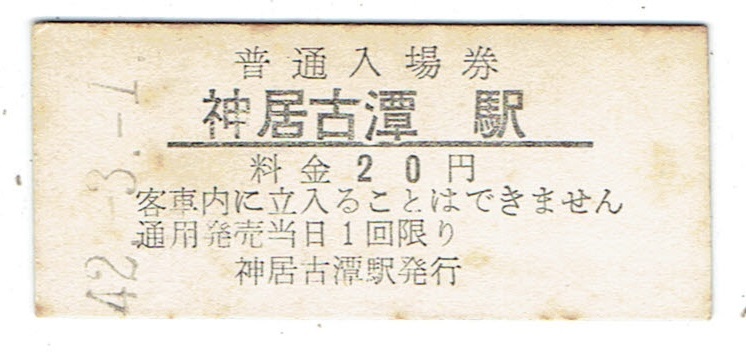 普通入場券
神居古潭 駅
料金20円
客車内に立入ることはできません
通用発売当日1回限り
神居古潭駅発行
42.-3.-7.